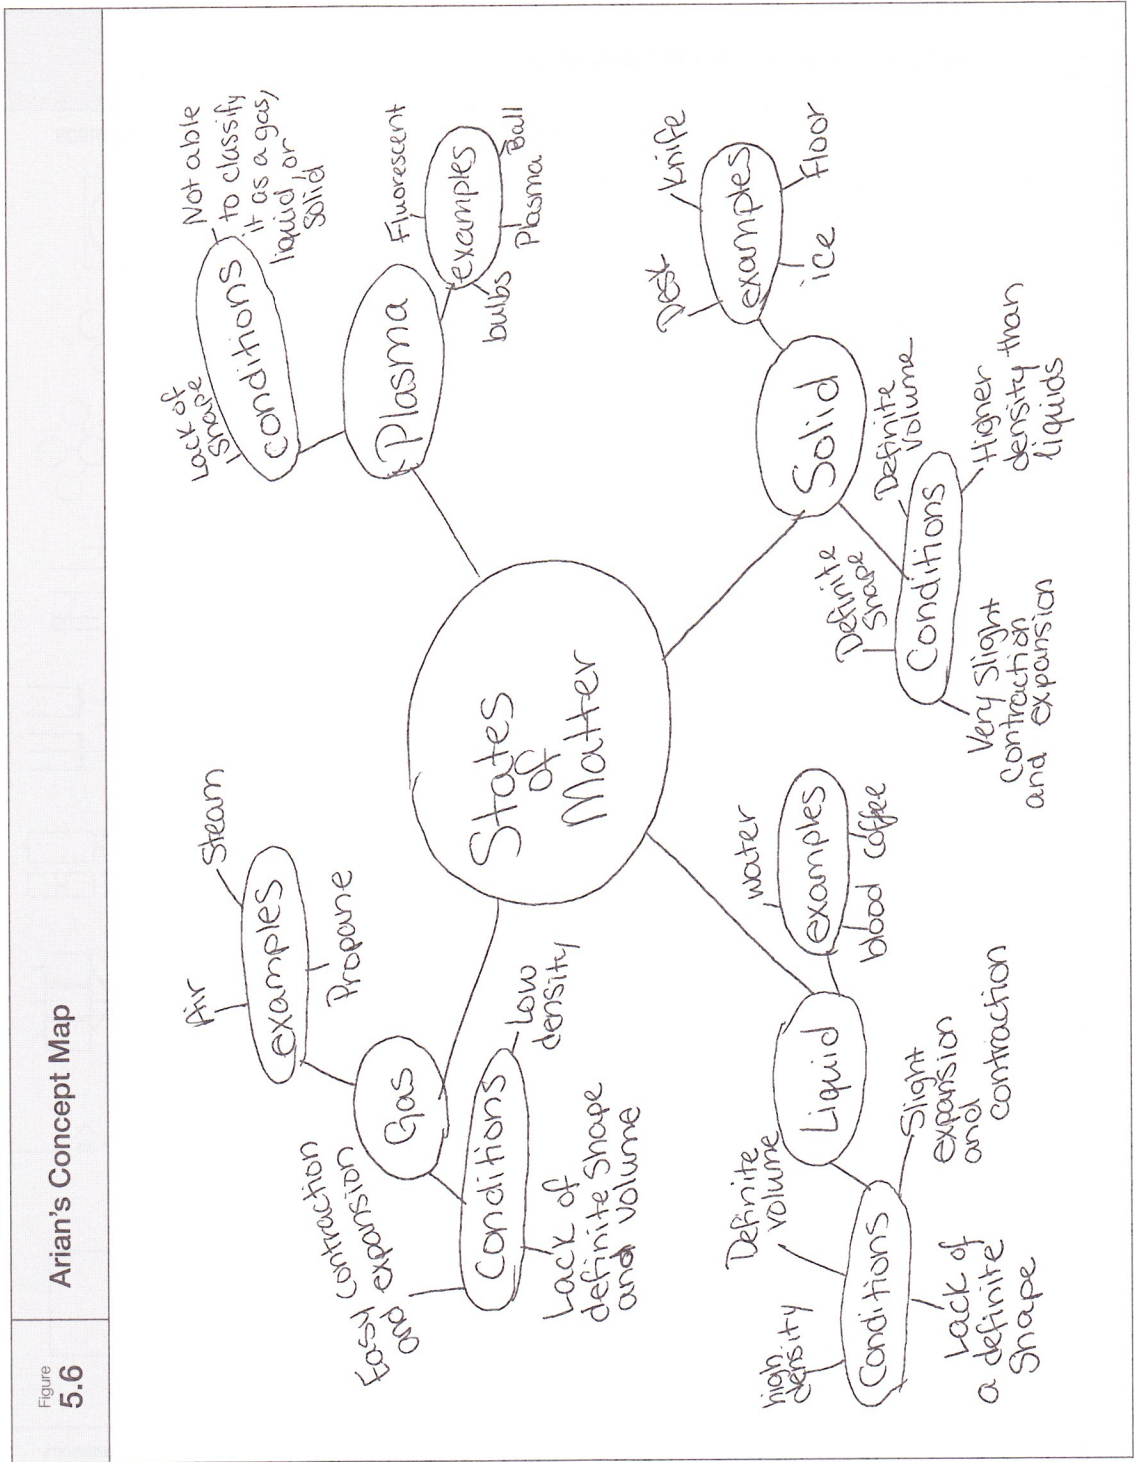 Figure
5.6
Arian's Concept Map
States
of
Matter
Gas
examples
Air
Steam
Propane
Conditions
Easy contraction
and expansion
Low
density
Lack of
definite Shape
and volume
Plasma
conditions
Lack of
Shape
Not able
to classify
it as a gas,
liquid, or
Solid
examples
Fluorescent
bulbs
Plasma Ball
Liquid
examples
water
blood coffee
Conditions
high
density
Definite
volume
Slight
expansion
and
contraction
Lack of
a definite
Shape
Solid
examples
Desk
Knife
ice
floor
Conditions
Definite
Shape
Definite
Volume
Very Slight
contraction
and expansion
Higher
density than
liquids